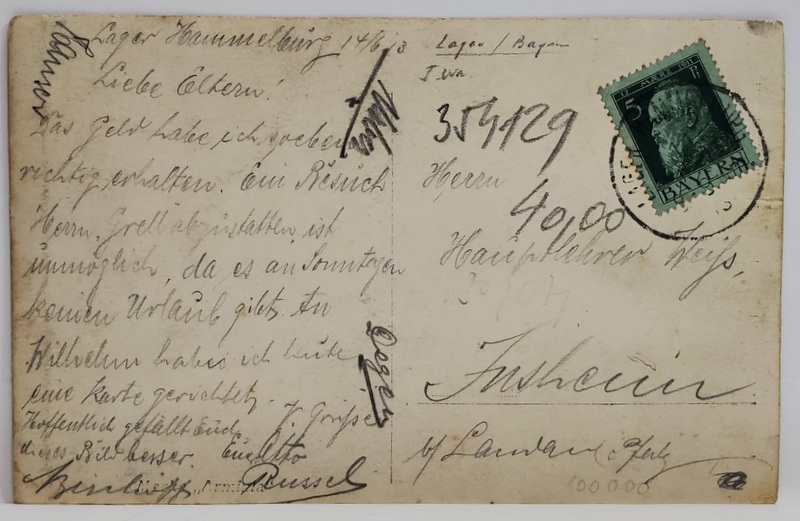 Lager Hammelburg 14/6 13
Liebe Eltern!
Das Geld habe ich soeben
richtig erhalten. Ein Besuch
Herrn Grell abzustatten ist
unmöglich, da es an Sonntagen
keinen Urlaub gibt. An
Wilhelm habe ich heute
eine Karte gerichtet.
Hoffentlich gefällt Euch H. Grüße
dieses Bild besser. Eu Otto
Bischoff Reussel
Degen
354129
Herrn
40,00
Hauptlehrer Weiß,
Insheim
b/ Landau Pfalz
000000
5
BAYERN